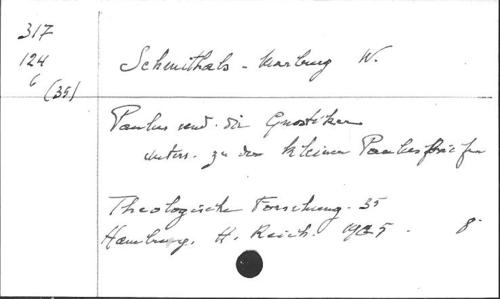 317
124
6
(35)
Schmithals - Marburg W.
Paulus und die Gnostiker
Unters. zu den kleinen Paulusbriefen
Theologische Forschung. 35
Hamburg, H. Reich. 1965. 8°